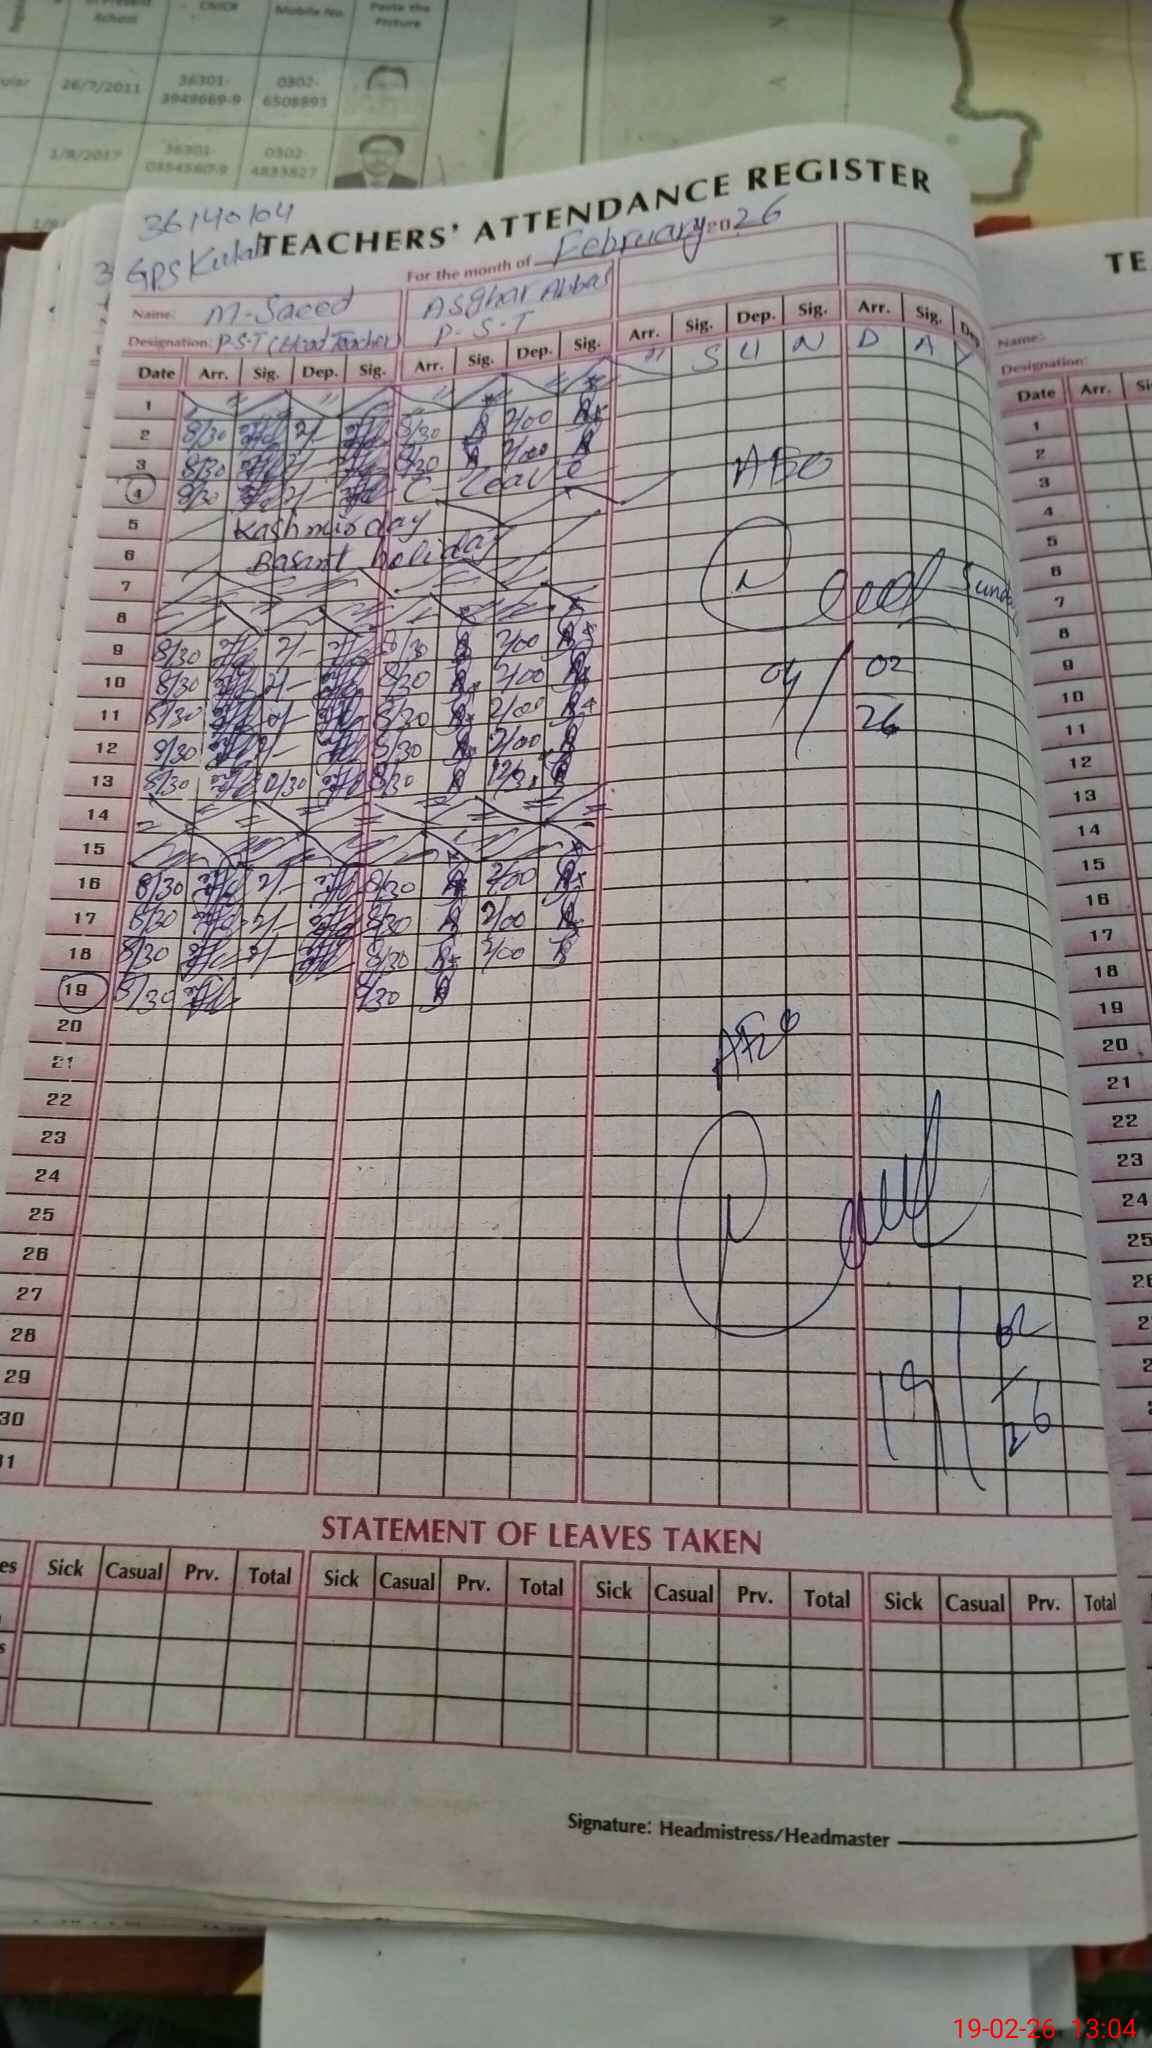 in Present School
CNIC#
Mobile No.
Paste the Picture
26/7/2011 36301-3949669-9 0302-6508893
1/8/2017 36301-0354560-9 0302-4833827
36140104
TEACHERS' ATTENDANCE REGISTER
GPS Kulab
For the month of February 2026
Name: M-Saeed Asghar Abbas
Designation: P.S.T (Head Teacher) P-S-T
Date Arr. Sig. Dep. Sig. Arr. Sig. Dep. Sig. Arr. Sig. Dep. Sig. Arr. Sig. Dep.
1 SUNDAY
2 8/30 2/- 8/30 2/00
3 8/30 2/- 8/30 2/00
4 8/30 2/- C-Leave
AEO
5 Kashmir day
6 Basant holiday
7
8 Sunda
9 8/30 2/- 8/30 2/00
10 8/30 2/- 8/30 2/00
04/02
11 8/30 2/- 8/30 2/00
26
12 8/30 2/- 8/30 2/00
13 8/30 12/30 8/30 12/30
14
15
16 8/30 2/- 8/30 2/00
17 8/30 2/- 8/30 2/00
18 8/30 2/- 8/30 2/00
19 8/30 8/30
20
AEO
21
22
23
24
25
26
27
28
29
19/02/26
30
31
STATEMENT OF LEAVES TAKEN
Sick Casual Prv. Total Sick Casual Prv. Total Sick Casual Prv. Total Sick Casual Prv. Total
Signature: Headmistress/Headmaster
TE
Name:
Designation:
Date Arr.
1
2
3
4
5
6
7
8
9
10
11
12
13
14
15
16
17
18
19
20
21
22
23
24
25
19-02-26 13:04